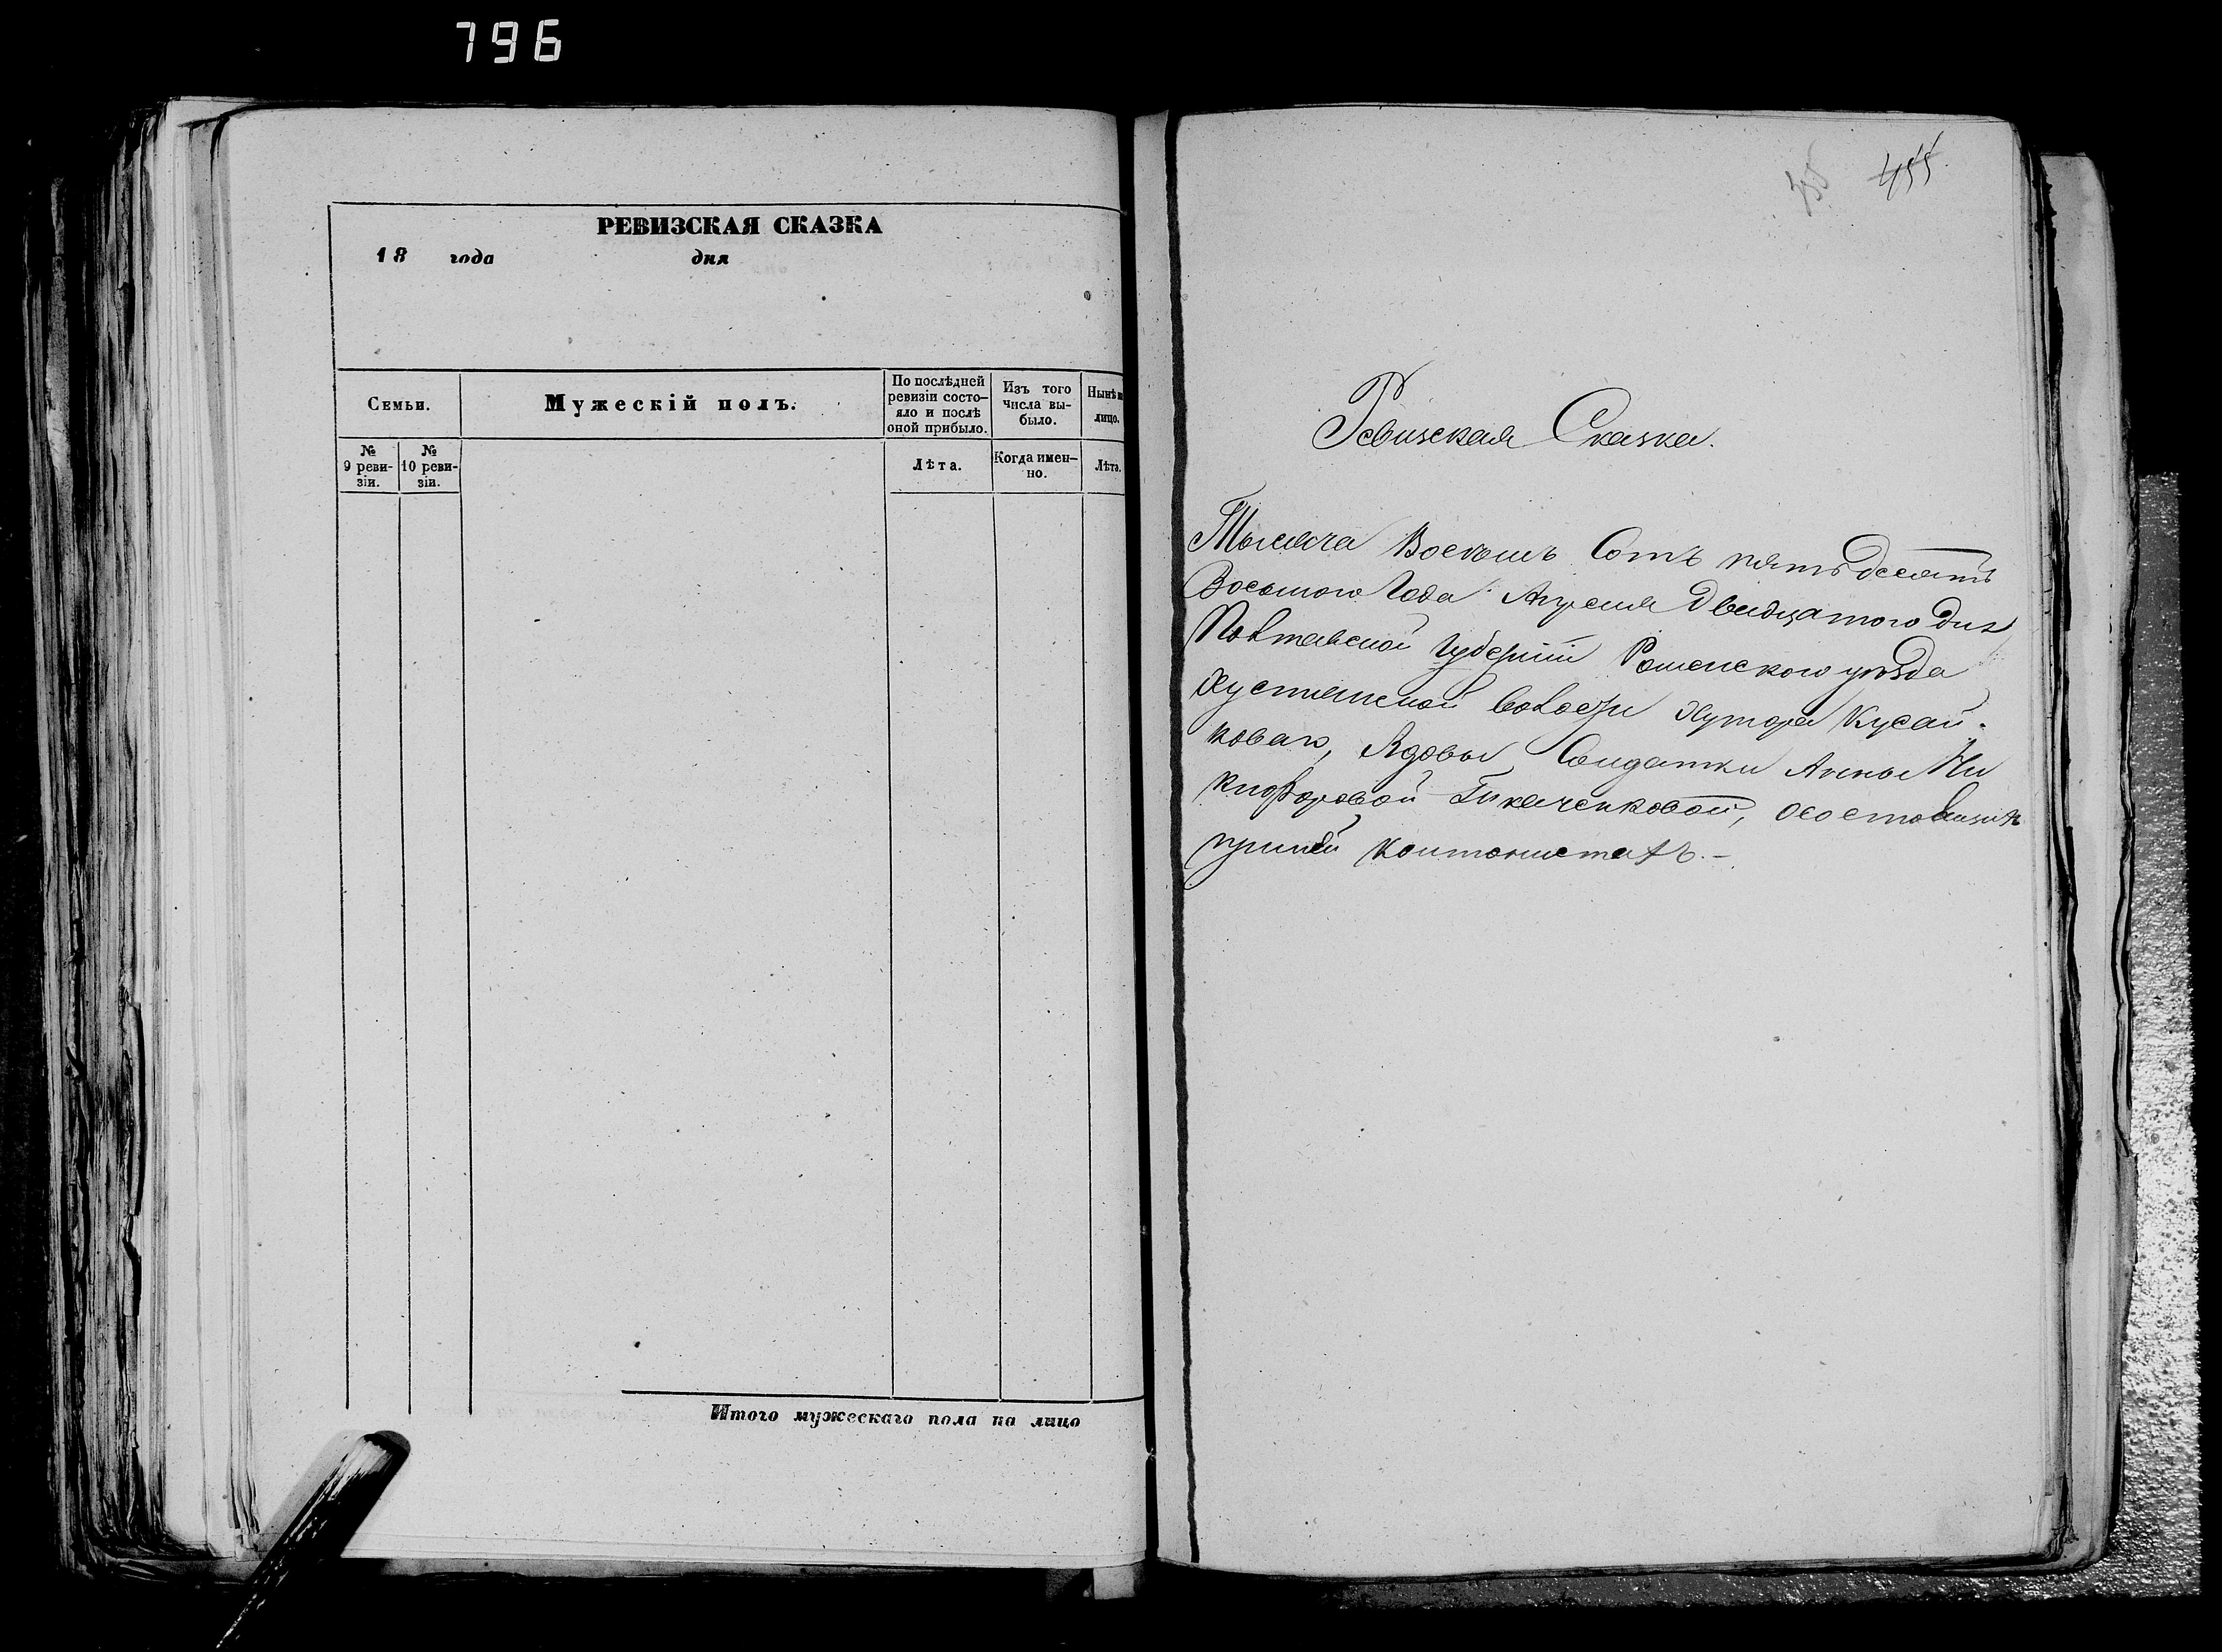 796
РЕВИЗСКАЯ СКАЗКА
18 года дня
Семьи.
Мужескій полъ.
По послѣдней ревизіи состо-
яло и послѣ оной прибыло.
Изъ того числа вы-
было.
Нынѣ
лицо.
№ 9 реви-
зіи.
№ 10 реви-
зіи.
Лѣта.
Когда имен-
но.
Лѣта.
Итого мужескаго пола на лицо
455.
Ревизская Сказка.
Тысяча Восемь Сотъ пятьдесятъ
Восьмого Года Апреля Двадцатого дня
Полтавской Губерніи Роменского уѣзда
Хустянской Волости Хутора Кусай-
ковах, Вдовы Солдатки Анны Ни
кифоровой Ткаченковой, о состоящих
при ней Кантонистахъ.-